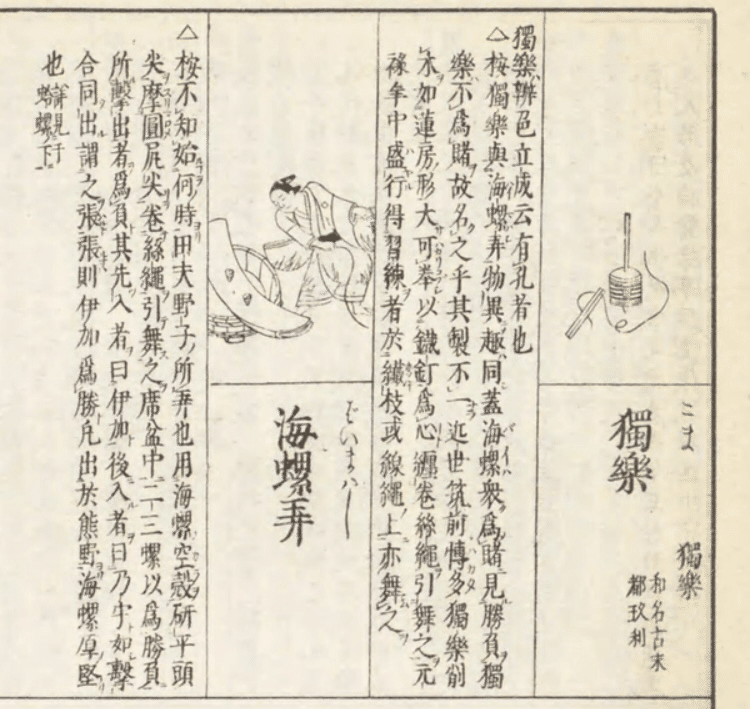 獨樂
和名古末
都玖利
こま
獨樂
獨樂辨色立成云有孔者也
△桉獨樂與海螺弄物異趣同蓋海螺衆爲賭見勝負獨
樂不爲賭故名之乎其製不一近世筑前博多獨樂削
木如蓮房形大可拳以鐵釘爲心纏卷絲繩引舞之元
祿年中盛行得習練者於纎枝或線繩上亦舞之
ばいまはし
海螺弄
△桉不知始何時田夫野子所弄也用海螺空殼研平頭
尖摩圓尻尖卷絲繩引舞之席盆中二三螺以爲勝負
所擊出者爲負其先入者曰伊加後入者曰乃宇如擊
合同出謂之張張則伊加爲勝凡出於熊野海螺厚堅
也
詳見于
螺下